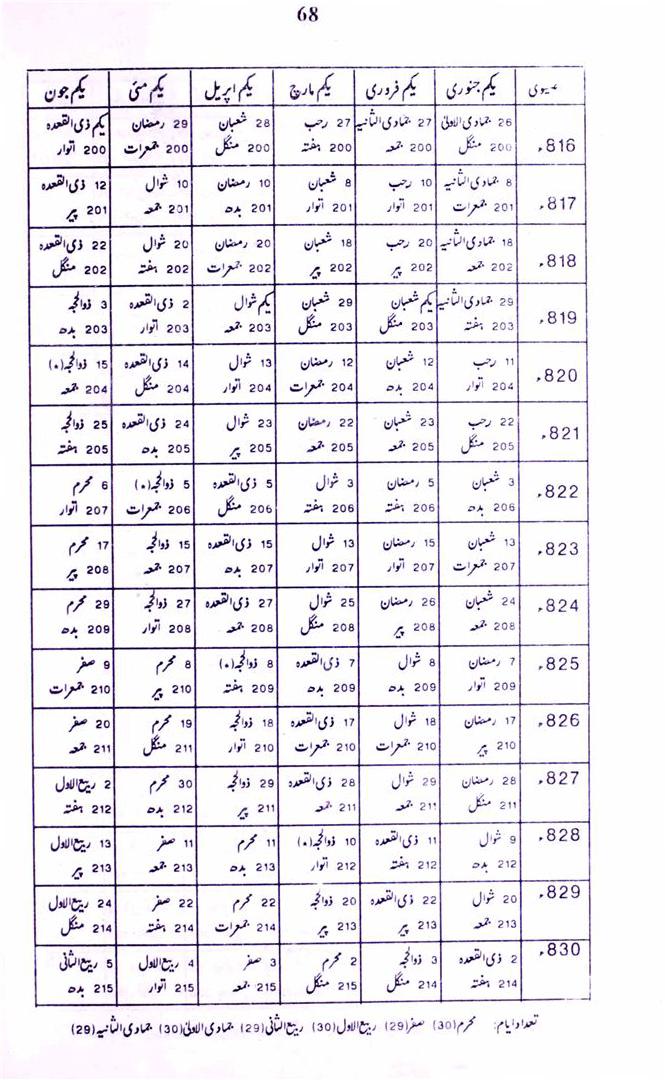 68
عیسوی | یکم جنوری | یکم فروری | یکم مارچ | یکم اپریل | یکم مئی | یکم جون
816ء | 26 جمادی الاولیٰ | 27 جمادی الثانیہ | 27 رجب | 28 شعبان | 29 رمضان | یکم ذی القعدہ
200 منگل | 200 جمعہ | 200 ہفتہ | 200 منگل | 200 جمعرات | 200 اتوار
817ء | 8 جمادی الثانیہ | 10 رجب | 8 شعبان | 10 رمضان | 10 شوال | 12 ذی القعدہ
201 جمعرات | 201 اتوار | 201 اتوار | 201 بدھ | 201 جمعہ | 201 پیر
818ء | 18 جمادی الثانیہ | 20 رجب | 18 شعبان | 20 رمضان | 20 شوال | 22 ذی القعدہ
202 جمعہ | 202 پیر | 202 پیر | 202 جمعرات | 202 ہفتہ | 202 منگل
819ء | 29 جمادی الثانیہ | یکم شعبان | 29 شعبان | یکم شوال | 2 ذی القعدہ | 3 ذوالحجہ
203 ہفتہ | 203 منگل | 203 منگل | 203 جمعہ | 203 اتوار | 203 بدھ
820ء | 11 رجب | 12 شعبان | 12 رمضان | 13 شوال | 14 ذی القعدہ | 15 ذوالحجہ (٭)
204 اتوار | 204 بدھ | 204 جمعرات | 204 اتوار | 204 منگل | 204 جمعہ
821ء | 22 رجب | 23 شعبان | 22 رمضان | 23 شوال | 24 ذی القعدہ | 25 ذوالحجہ
205 منگل | 205 جمعہ | 205 جمعہ | 205 پیر | 205 بدھ | 205 ہفتہ
822ء | 3 شعبان | 5 رمضان | 3 شوال | 5 ذی القعدہ | 5 ذوالحجہ (٭) | 6 محرم
206 بدھ | 206 ہفتہ | 206 ہفتہ | 206 منگل | 206 جمعرات | 207 اتوار
823ء | 13 شعبان | 15 رمضان | 13 شوال | 15 ذی القعدہ | 15 ذوالحجہ | 17 محرم
207 جمعرات | 207 اتوار | 207 اتوار | 207 بدھ | 207 جمعہ | 208 پیر
824ء | 24 شعبان | 26 رمضان | 25 شوال | 27 ذی القعدہ | 27 ذوالحجہ | 29 محرم
208 جمعہ | 208 پیر | 208 منگل | 208 جمعہ | 208 اتوار | 209 بدھ
825ء | 7 رمضان | 8 شوال | 7 ذی القعدہ | 8 ذوالحجہ (٭) | 8 محرم | 9 صفر
209 اتوار | 209 بدھ | 209 بدھ | 209 ہفتہ | 210 پیر | 210 جمعرات
826ء | 17 رمضان | 18 شوال | 17 ذی القعدہ | 18 ذوالحجہ | 19 محرم | 20 صفر
210 پیر | 210 جمعرات | 210 جمعرات | 210 اتوار | 211 منگل | 211 جمعہ
827ء | 28 رمضان | 29 شوال | 28 ذی القعدہ | 29 ذوالحجہ | 30 محرم | 2 ربیع الاول
211 منگل | 211 جمعہ | 211 جمعہ | 211 پیر | 212 بدھ | 212 ہفتہ
828ء | 9 شوال | 11 ذی القعدہ | 10 ذوالحجہ (٭) | 11 محرم | 11 صفر | 13 ربیع الاول
212 بدھ | 212 ہفتہ | 212 اتوار | 213 بدھ | 213 جمعہ | 213 پیر
829ء | 20 شوال | 22 ذی القعدہ | 20 ذوالحجہ | 22 محرم | 22 صفر | 24 ربیع الاول
213 جمعہ | 213 پیر | 213 پیر | 214 جمعرات | 214 ہفتہ | 214 منگل
830ء | 2 ذی القعدہ | 3 ذوالحجہ | 2 محرم | 3 صفر | 4 ربیع الاول | 5 ربیع الثانی
214 ہفتہ | 214 منگل | 215 منگل | 215 جمعہ | 215 اتوار | 215 بدھ
تعداد ایام: محرم (30) صفر (29) ربیع الاول (30) ربیع الثانی (29) جمادی الاولیٰ (30) جمادی الثانیہ (29)